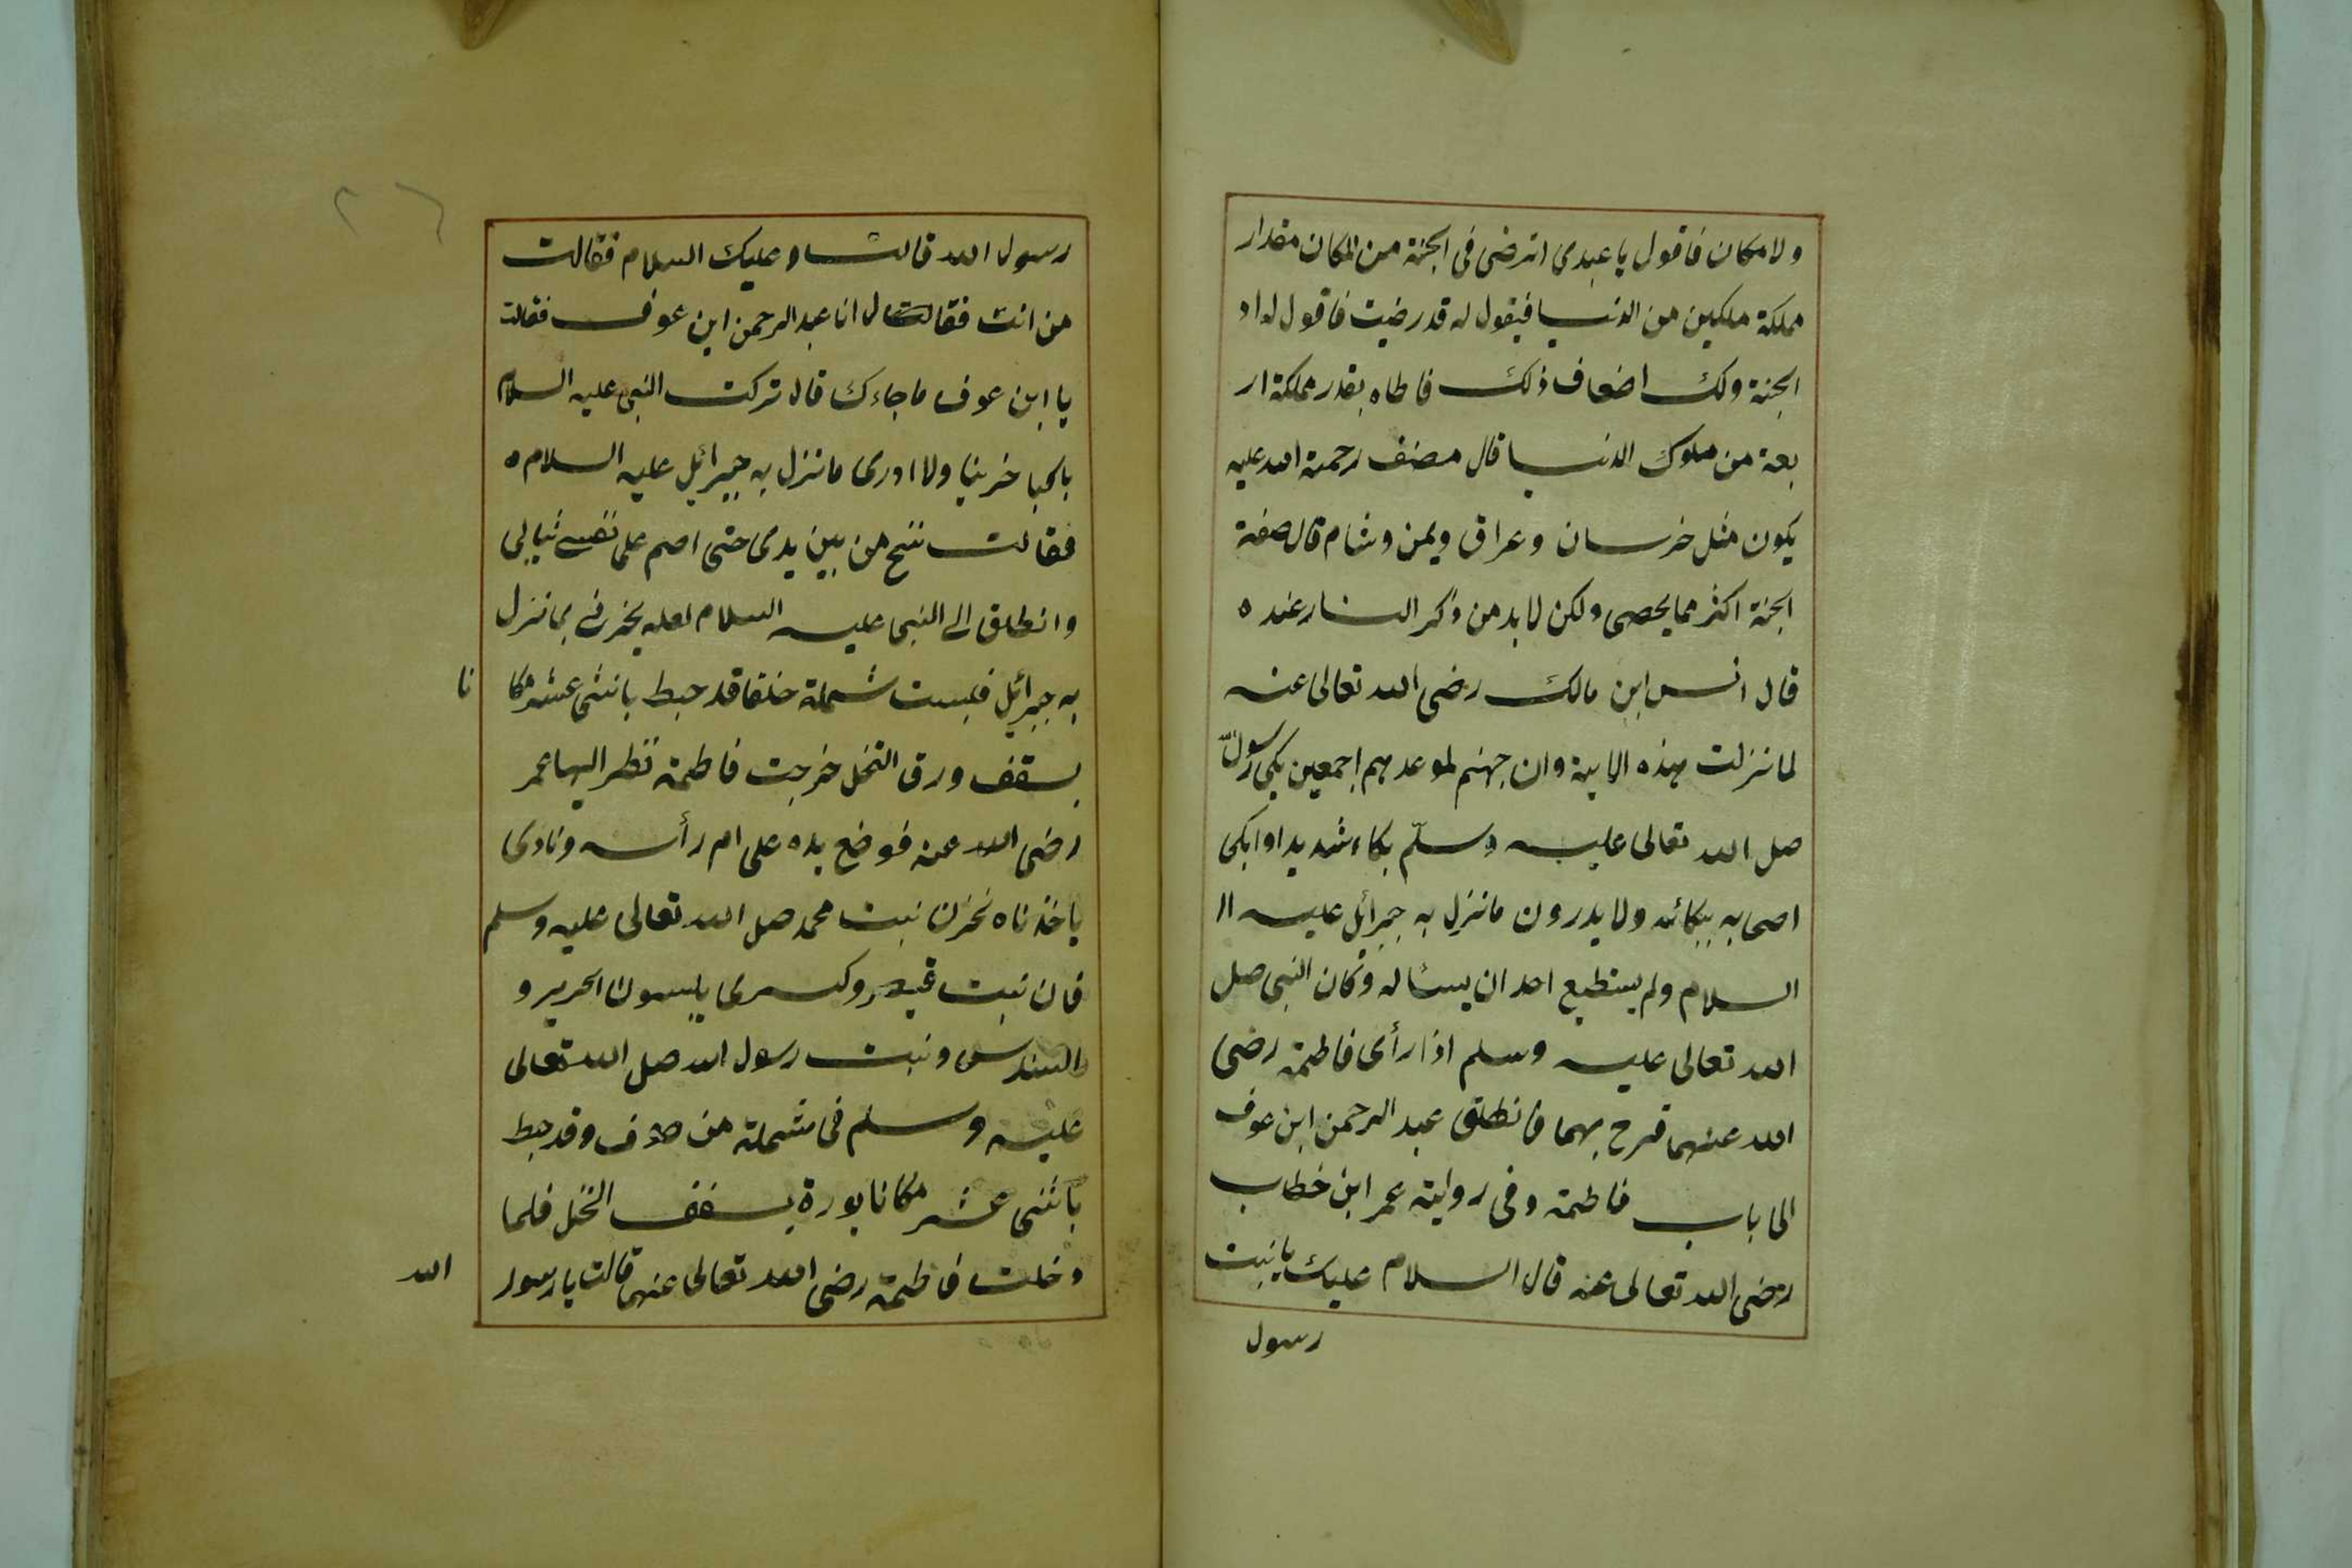 ولا مكان فاقول يا عبدى اترضى فى الجنة من المكان مقدار
مملكة ملكين من الدنيا فيقول له قد رضيت فاقول له اد
الجنة ولك اضعاف ذلك فاطاه بقدر مملكة ار
بعة من ملوك الدنيا قال مصنف رحمة الله عليه
يكون مثل خرسان وعراق ويمن وشام قال صفة
الجنة اكثر مما يحصى ولكن لابد من ذكر النار عنده
قال انس ابن مالك رضى الله تعالى عنه
لما نزلت هذه الاية وان جهنم لموعدهم اجمعين بكى رسول
صل الله تعالى عليه وسلّم بكاء شديدا وابكى
اصحابه ببكائه ولا يدرون ما نزل به جبرائيل عليه ال
السلام ولم يستطيع احد ان يسئاله وكان النبى صل
الله تعالى عليه وسلم اذا رأى فاطمة رضى
الله عنهما فرح بهما فانطلق عبد الرحمن ابن عوف
الى باب فاطمة وفى رواية عمر ابن خطاب
رضى الله تعالى عنه قال السلام عليك يا بنت
رسول
٢٦
رسول الله قالت وعليك السلام فقالت
من انت فقال انا عبد الرحمن ابن عوف فقالت
يا ابن عوف ما جاءك قال تركت النبى عليه السلام
باكيا خرينا ولا ادرى ما نزل به جبرائيل عليه السلام
فقالت تنح من بين يدى حتى اصم على نفسى ثيابى
وانطلق الى النبى عليه السلام لعله يخبرنى بما نزل
به جبرائيل فلبست شملة خلقا قد حبط باثنى عشر مكا نا
بسقف ورق النخل خرجت فاطمة نظر اليها عمر
رضى الله عنه فوضع يده على ام رأسه ونادى
ياخذناه نحزن نبت محمد صل الله تعالى عليه وسلم
فان نبت قيصر وكسرى يلبسون الحرير و
السندس ونبت رسول الله صل الله تعالى
عليه وسلم فى شملة من صوف وقد حبط
باثنى عشر مكانا بورة بسقف النخل فلما
دخلت فاطمة رضى الله تعالى عنها قالت يا رسول
الله